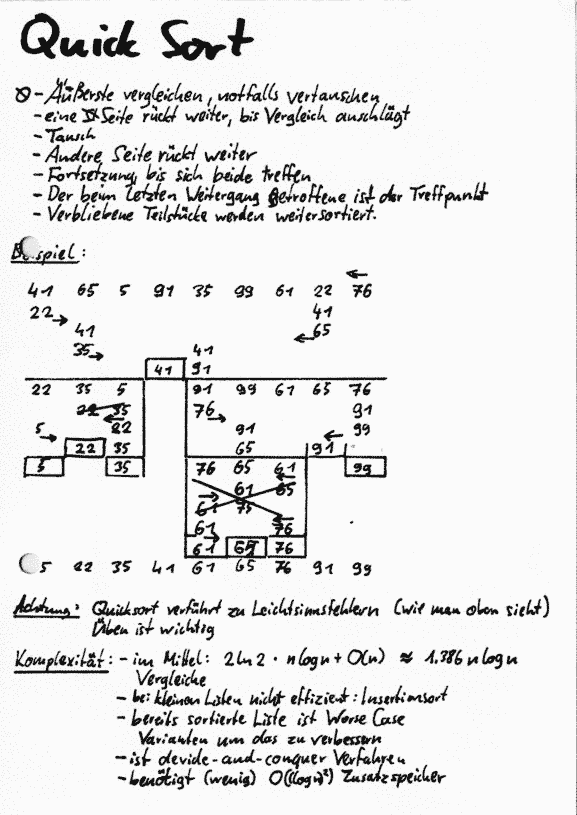 Quick Sort
- Äußerste vergleichen, notfalls vertauschen
- eine Seite rückt weiter, bis Vergleich anschlägt
- Tausch
- Andere Seite rückt weiter
- Fortsetzung bis sich beide treffen
- Der beim letzten Weitergang getroffene ist der Treffpunkt
- Verbliebene Teilstücke werden weitersortiert.
Beispiel:
←
41 65 5 91 35 99 61 22 76
22→ 41
41 ←65
35→ 41
41 91
22 35 5 91 99 61 65 76
22 35 76→ 91
5→ ← 22 91 ← 99
22 35 65 91
5 35 76 65 61 99
← 61 65
→ 61 75
← 61 76
→
61 65 76
5 22 35 41 61 65 76 91 99
Achtung: Quicksort verführt zu Leichtsinnsfehlern (wie man oben sieht)
Üben ist wichtig
Komplexität: - im Mittel: 2 ln 2 · n log n + O(n) ≈ 1.386 n log n
Vergleiche
- bei kleinen Listen nicht effizient: Insertionsort
- bereits sortierte Liste ist Worse Case
Varianten um das zu verbessern
- ist devide-and-conquer Verfahren
- benötigt (wenig) O((log n)²) Zusatzspeicher